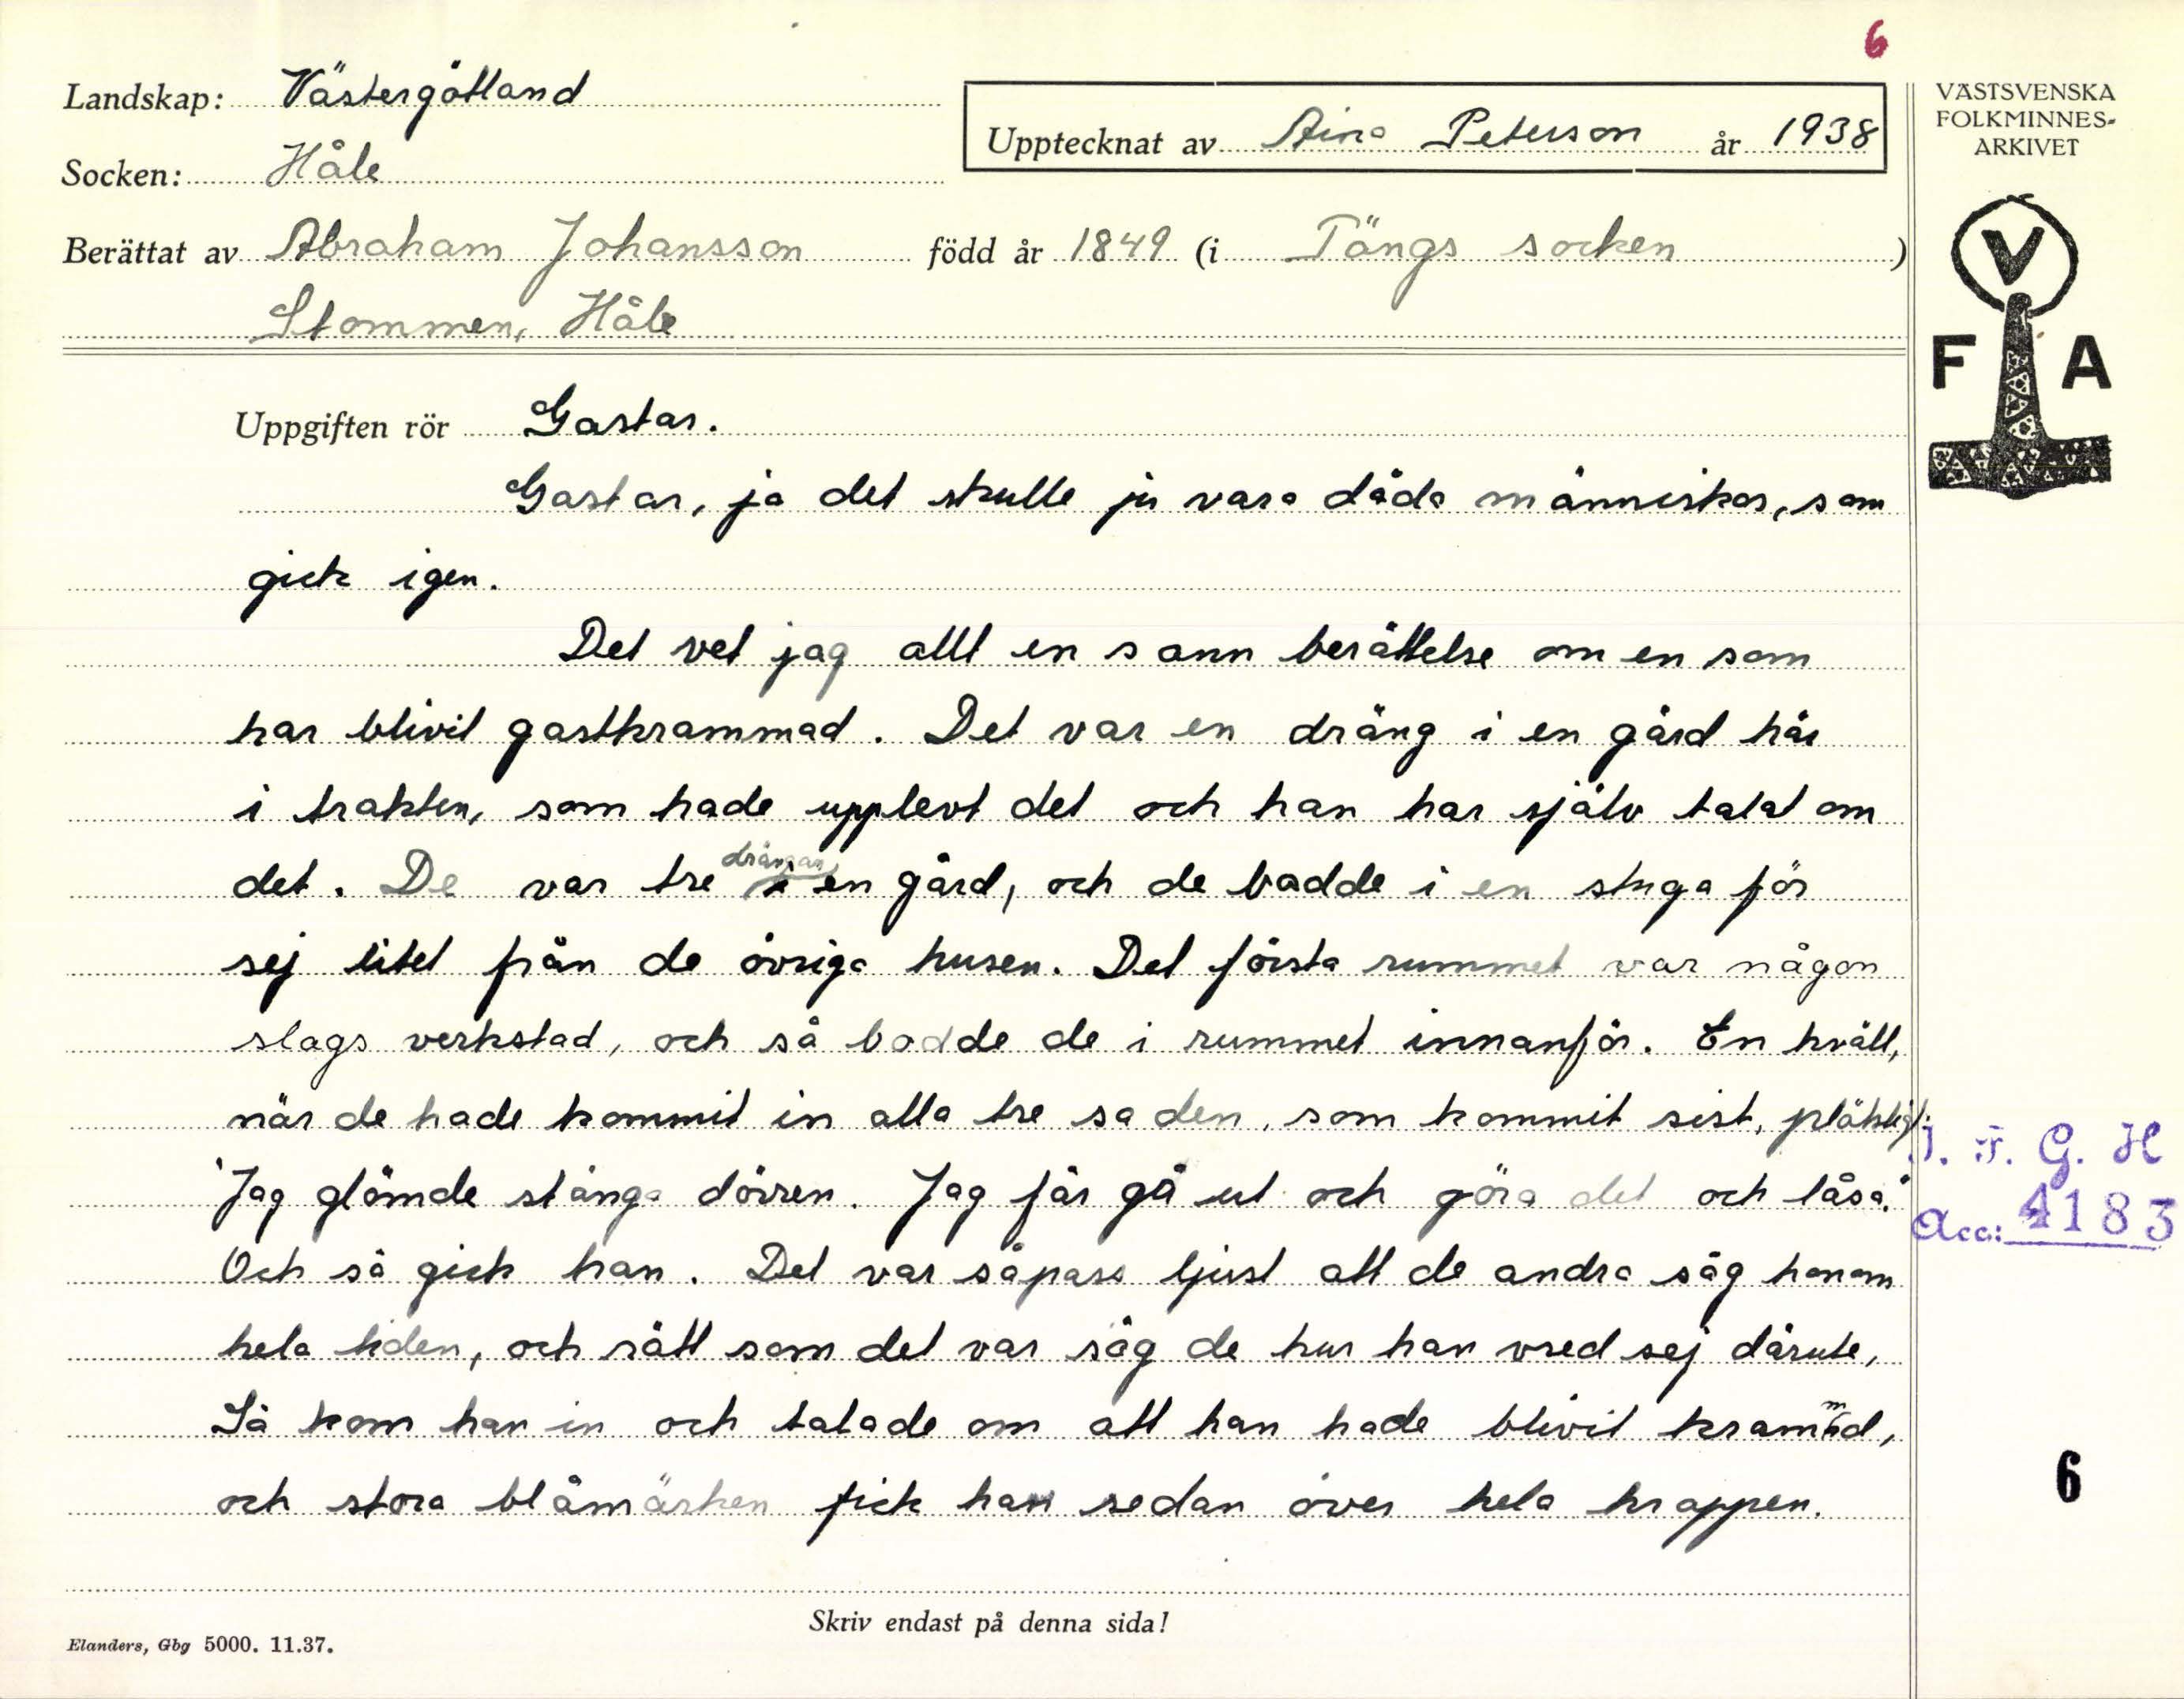 6
Landskap: Västergötland
Upptecknat av Aina Peterson år 1938
VÄSTSVENSKA
FOLKMINNES-
ARKIVET
Socken: Håle
Berättat av Abraham Johansson född år 1849 (i Tängs socken)
Stommen, Håle
V
F A
Uppgiften rör Gastar.
Gastar, ja det skulle ju vara döda människor, som
gick igen.
Det vet jag allt en sann berättelse om en som
har blivit gastkrammad. Det var en dräng i en gård här
i trakten, som hade upplevt det och han har själv talat om
det. De var tre drängar i en gård, och de bodde i en stuga för
sej litet från de övriga husen. Det första rummet var någon
slags verkstad, och så bodde de i rummet innanför. En kväll,
när de hade kommit in alla tre sa den, som kommit sist, plötsligt:
"Jag glömde stänga dörren. Jag får gå ut och göra det och låsa."
Och så gick han. Det var såpass ljust att de andra såg honom
hela tiden, och rätt som det var såg de hur han vred sej därute,
Så kom han in och talade om att han hade blivit krammad,
och stora blåmärken fick han sedan över hela kroppen.
I. F. G. H
Acc: 4183
6
Skriv endast på denna sida!
Elanders, Gbg 5000. 11.37.